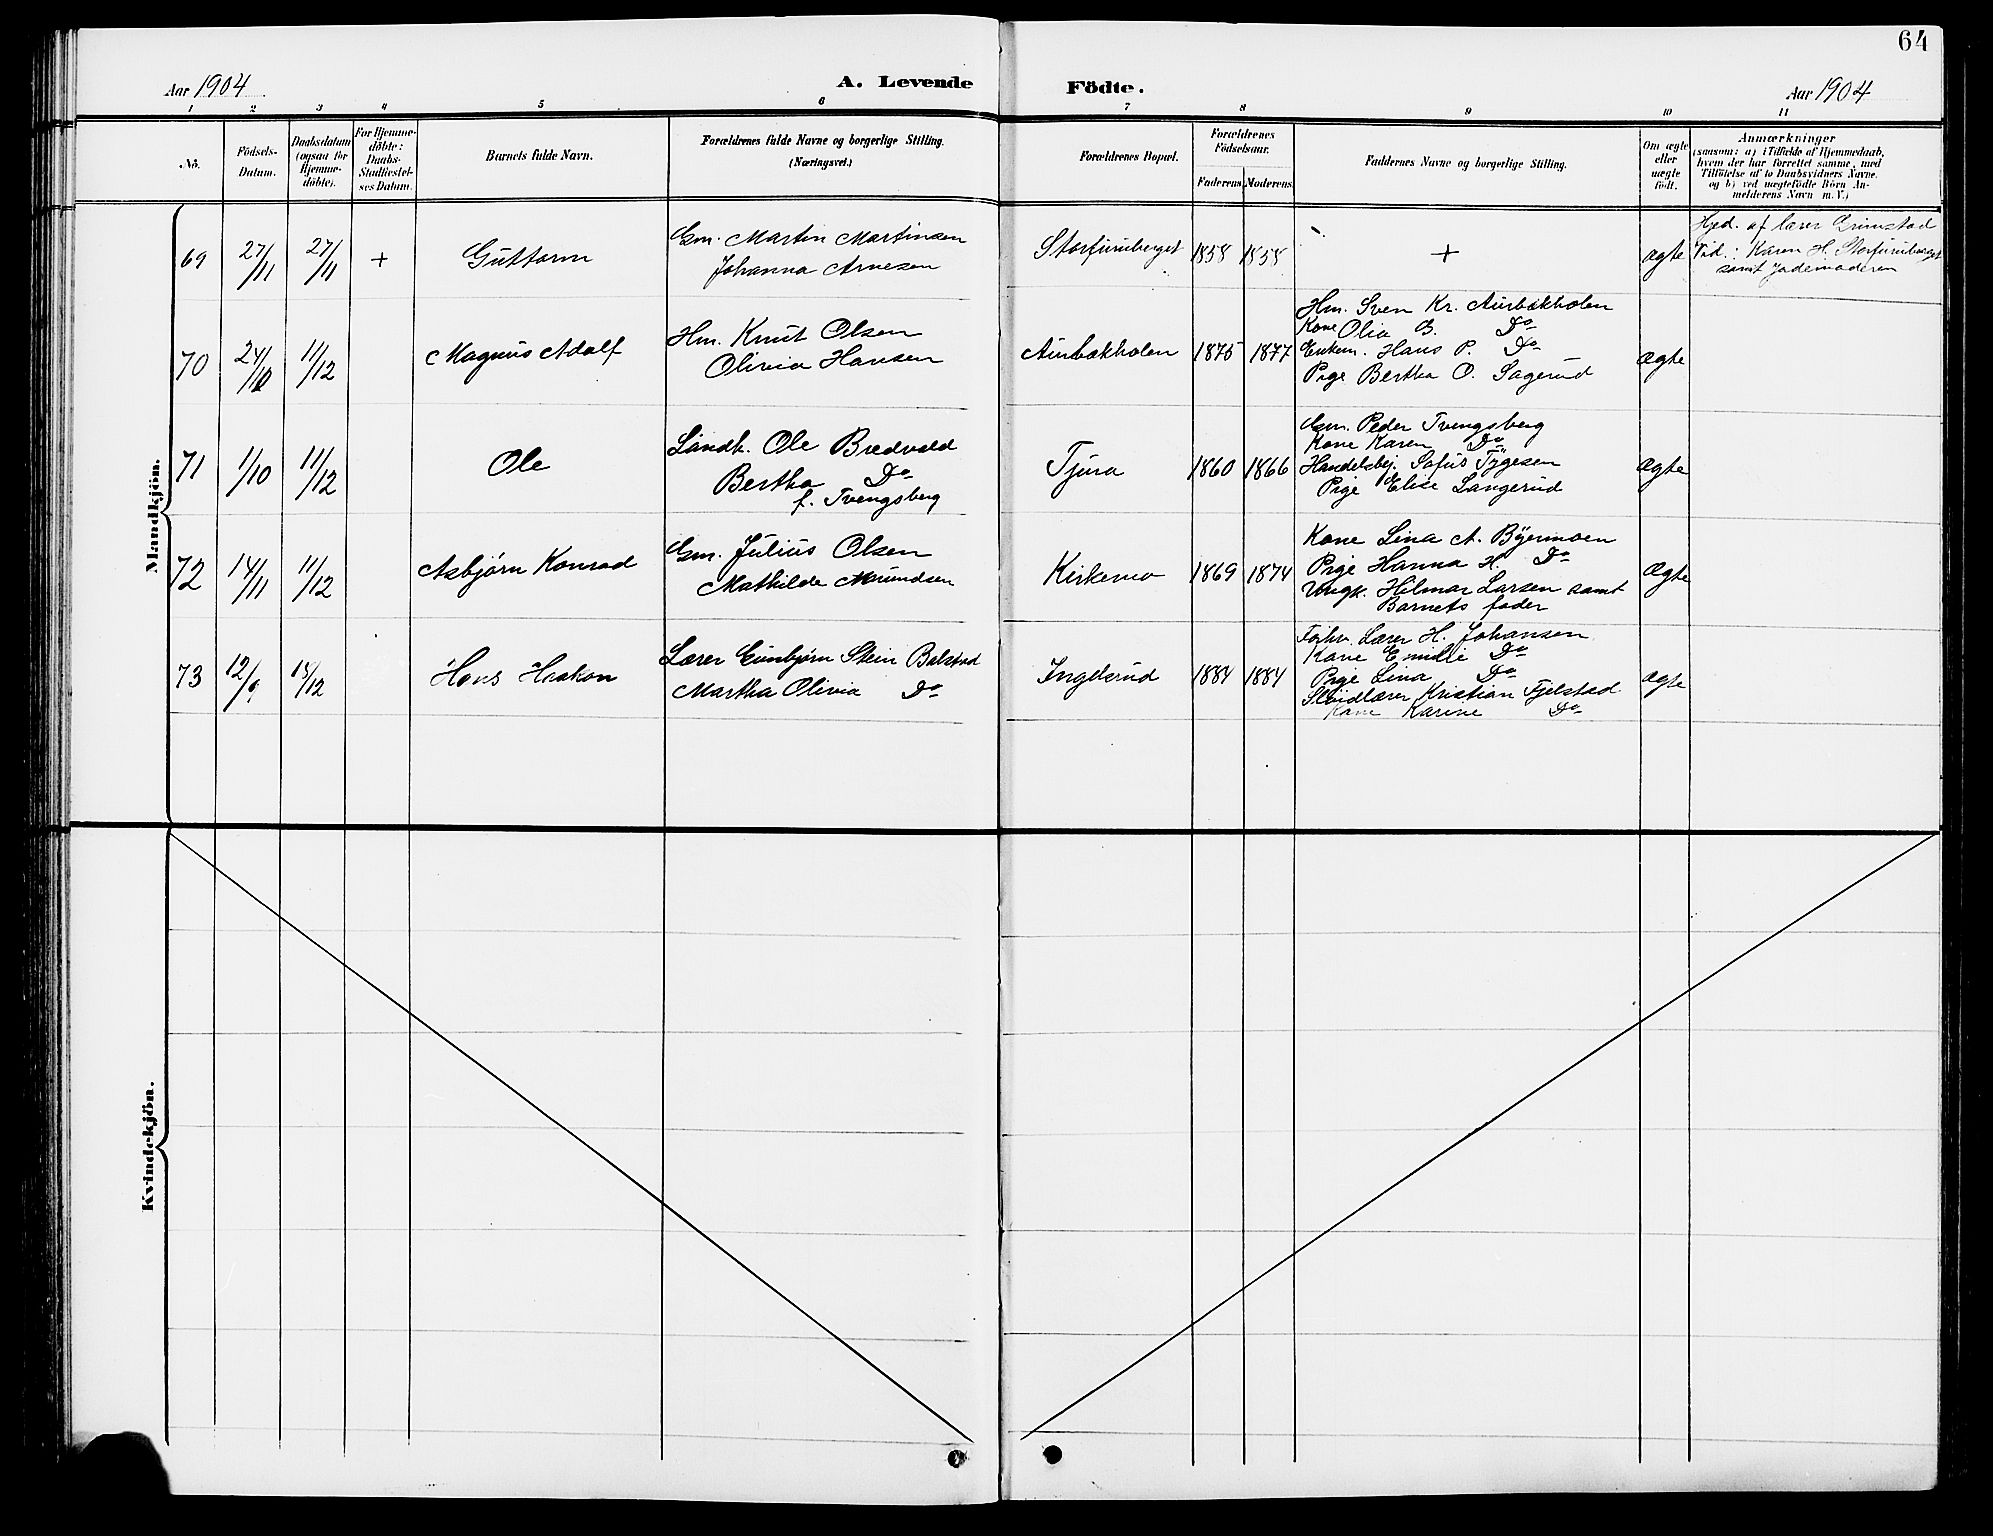 64
Aar 1904
A. Levende
Födte.
Aar 1904
1 2 3 4 5 6 7 8 9 10 11
No.
Födsels-
Datum.
Daabsdatum
(ogsaa for
Hjemme-
döbte).
For Hjemme-
döbte:
Daabs-
Stadfæstel-
ses Datum.
Barnets fulde Navn.
Forældrenes fulde Navne og borgerlige Stilling.
(Næringsvei.)
Forældrenes Bopæl.
Forældrenes
Födselsaar.
Faderens Moderens
Faddernes Navne og borgerlige Stilling.
Om ægte
eller
uægte
född.
Anmærkninger
(saasom: a) i Tilfælde af Hjemmedaab,
hvem der har forrettet samme, med
Tilföielse af to Daabsvidners Navne.
og b) ved uægtefödte Börn An-
melderens Navn m. V.)
Mandkjön.
69 27/11 27/11 + Guttorm
Gm. Martin Martinsen
Johanna Arnesen
Storfuruberget 1858 1858 + ægte
Hjed. af lærer Grimstad
Vid.: Karen H. Storfuruberget
samt Jordemoderen
70 24/10 11/12 Magnus Adolf
Hm. Knut Olsen
Olivia Hansen
Aurbækholen 1875 1877
Hm. Sven Kr. Aurbækholen
Kone Olia B. Do
Enkem. Hans P. Do
Pige Bertha O. Sagerud
ægte
71 1/10 11/12 Ole
Landh. Ole Bredvold
Bertha Do
f. Tvengsberg
Tjura 1860 1866
Gm. Peder Tvengsberg
Kone Karen Do
Handelsbej. Sofus Tygesen
Pige Elise Langerud
ægte
72 14/11 11/12 Asbjørn Konrad
Gm. Julius Olsen
Mathilde Amundsen
Kirkemo 1869 1874
Kone Lina A. Byermoen
Pige Hanna H. Do
Ungk. Hilmar Larsen samt
Barnets fader
ægte
73 12/9 18/12 Hans Haakon
Lærer Gunbjørn Stein Bolstad
Martha Olivia Do
Ingelsrud 1884 1884
Lærer H. Johansen
Kone Emilie Do
Pige Lina Do
Sløidlærer Kristian Fjelstad
Kone Karine Do
ægte
Kvindekjön.